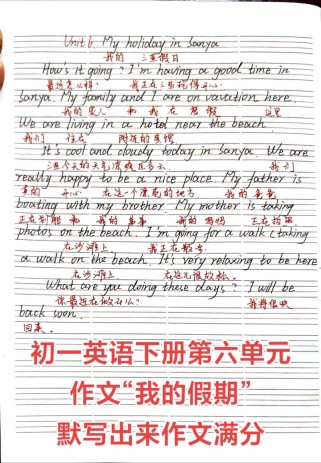 Unit 6 My holiday in Sanya
我的 三亚假日
How's it going? I'm having a good time in
最近怎么样? 我正在三亚玩得开心
Sanya. My family and I are on vavation here.
我的家人 和 我 在 度假 这里
We are living in a hotel near the beach.
我们 住在 附近的宾馆
It's cool and cloudy today in Sanya. We are
三亚今天的天气凉爽且多云 我们
really happy to be a nice place. My father is
真的 开心 在这一个漂亮的地方 我的爸爸
boating with my brother. My mother is taking
正在划船 和 我的弟弟 我的妈妈 正在拍照
photos on the beach. I'm going for a walk (taking
在沙滩上 我正在散步
a walk on the beach. It's very relaxing to be here
在沙滩上 在这儿很放松。
What are you doing these days? I will be
你最近在做什么? 我将很快
back soon.
回来。
初一英语下册第六单元
作文“我的假期”
默写出来作文满分